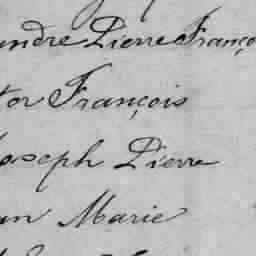 andre Pierre Franço
tor François
Joseph Pierre
an Marie